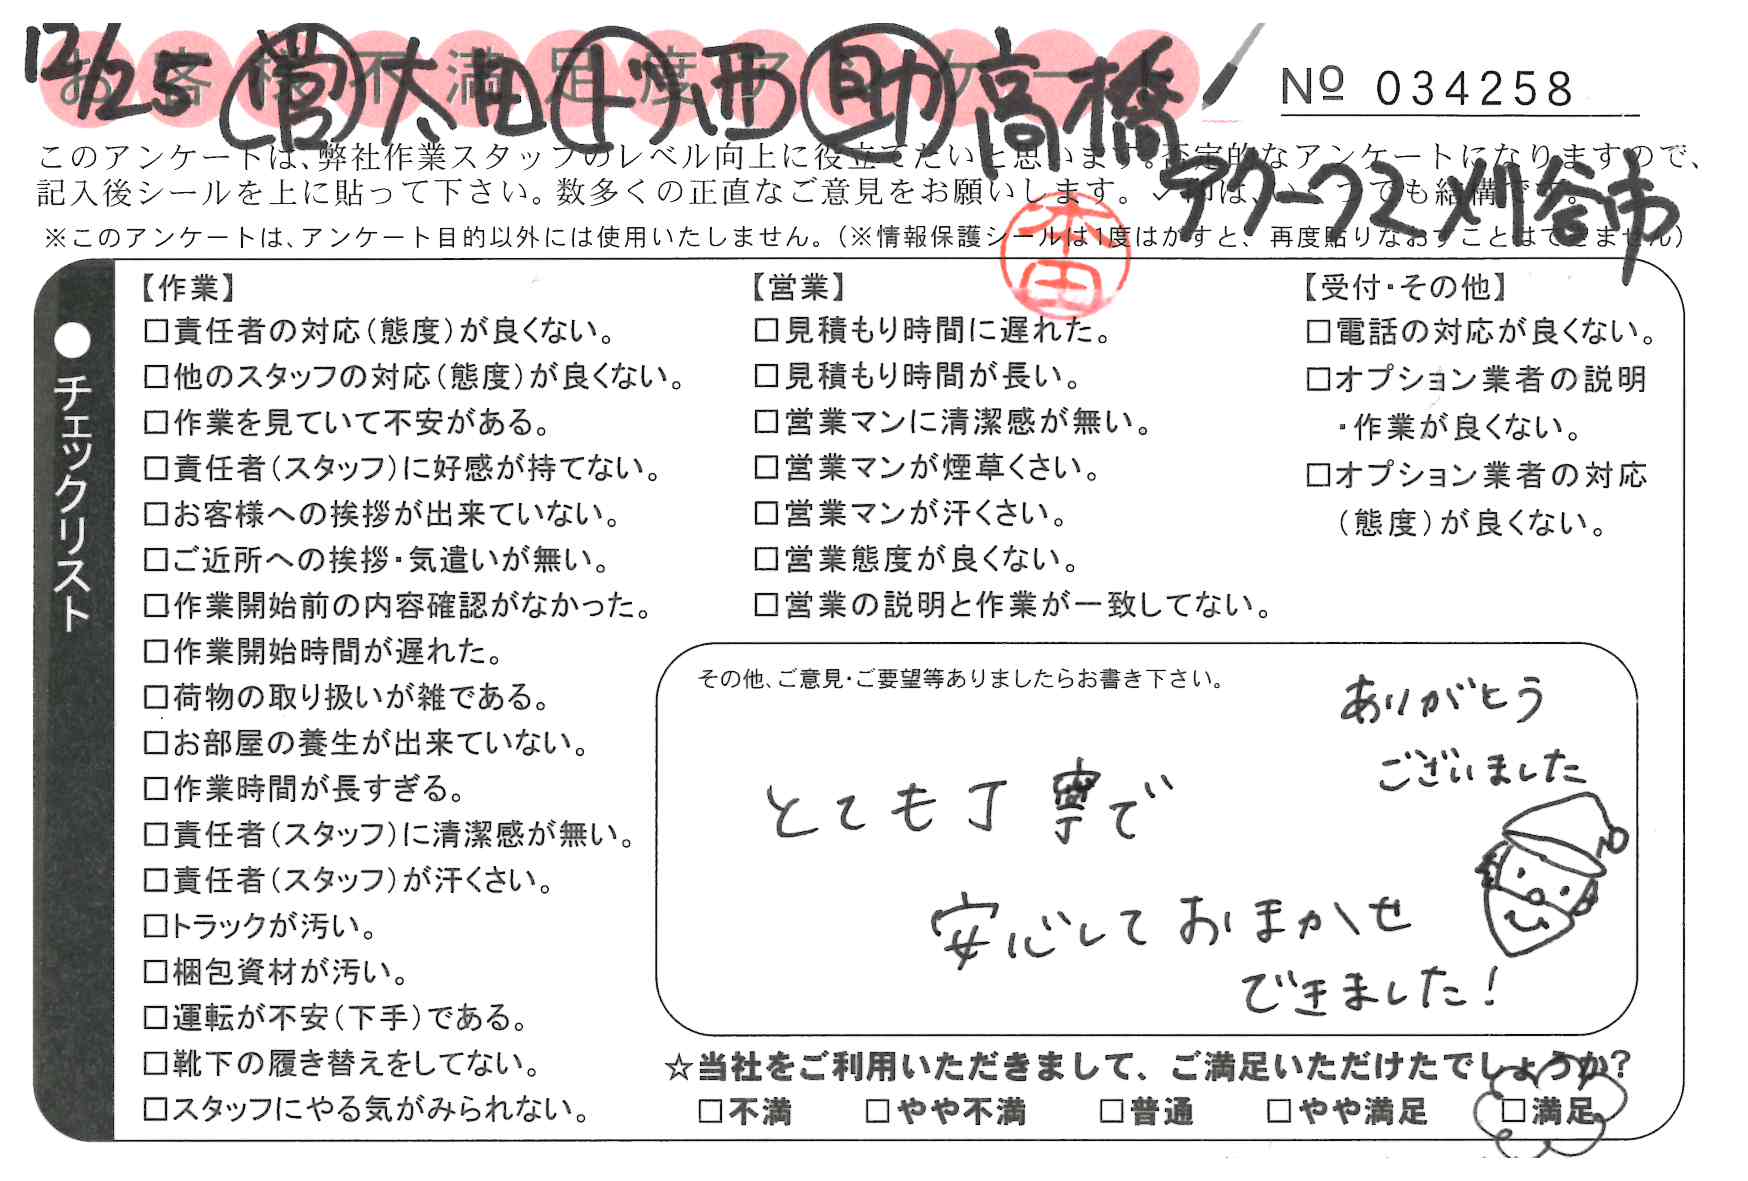 12/25 営 太田 ド 西 助 高橋
お客様不満足度アンケート
Nº 034258
このアンケートは、弊社作業スタッフのレベル向上に役立てたいと思います。否定的なアンケートになりますので、
テクーフ2 刈谷市
記入後シールを上に貼って下さい。数多くの正直なご意見をお願いします。✓印は、いくつでも結構です。
※このアンケートは、アンケート目的以外には使用いたしません。(※情報保護シールは1度はがすと、再度貼りなおすことはできません)
本田
●チェックリスト
【作業】
□責任者の対応(態度)が良くない。
□他のスタッフの対応(態度)が良くない。
□作業を見ていて不安がある。
□責任者(スタッフ)に好感が持てない。
□お客様への挨拶が出来ていない。
□ご近所への挨拶・気遣いが無い。
□作業開始前の内容確認がなかった。
□作業開始時間が遅れた。
□荷物の取り扱いが雑である。
□お部屋の養生が出来ていない。
□作業時間が長すぎる。
□責任者(スタッフ)に清潔感が無い。
□責任者(スタッフ)が汗くさい。
□トラックが汚い。
□梱包資材が汚い。
□運転が不安(下手)である。
□靴下の履き替えをしてない。
□スタッフにやる気がみられない。
【営業】
□見積もり時間に遅れた。
□見積もり時間が長い。
□営業マンに清潔感が無い。
□営業マンが煙草くさい。
□営業マンが汗くさい。
□営業態度が良くない。
□営業の説明と作業が一致してない。
【受付・その他】
□電話の対応が良くない。
□オプション業者の説明
・作業が良くない。
□オプション業者の対応
(態度)が良くない。
その他、ご意見・ご要望等ありましたらお書き下さい。
ありがとう
ございました
とても丁寧で
安心しておまかせ
できました!
☆当社をご利用いただきまして、ご満足いただけたでしょうか?
□不満 □やや不満 □普通 □やや満足 □満足